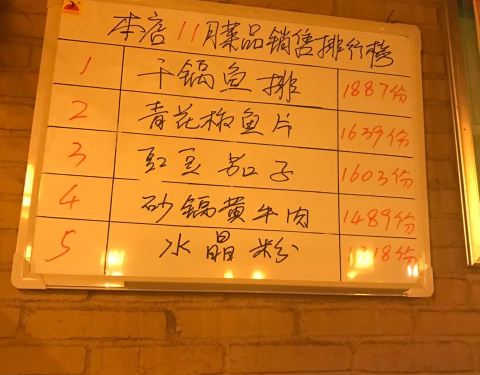 本店11月菜品销售排行榜
1 干锅鱼排 1887份
2 青花椒鱼片 1639份
3 豇豆茄子 1603份
4 砂锅黄牛肉 1489份
5 水晶粉 1318份